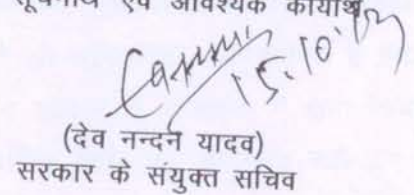 सूचनार्थ एवं आवश्यक कार्यार्थ
15.10.
(देव नन्दन यादव)
सरकार के संयुक्त सचिव